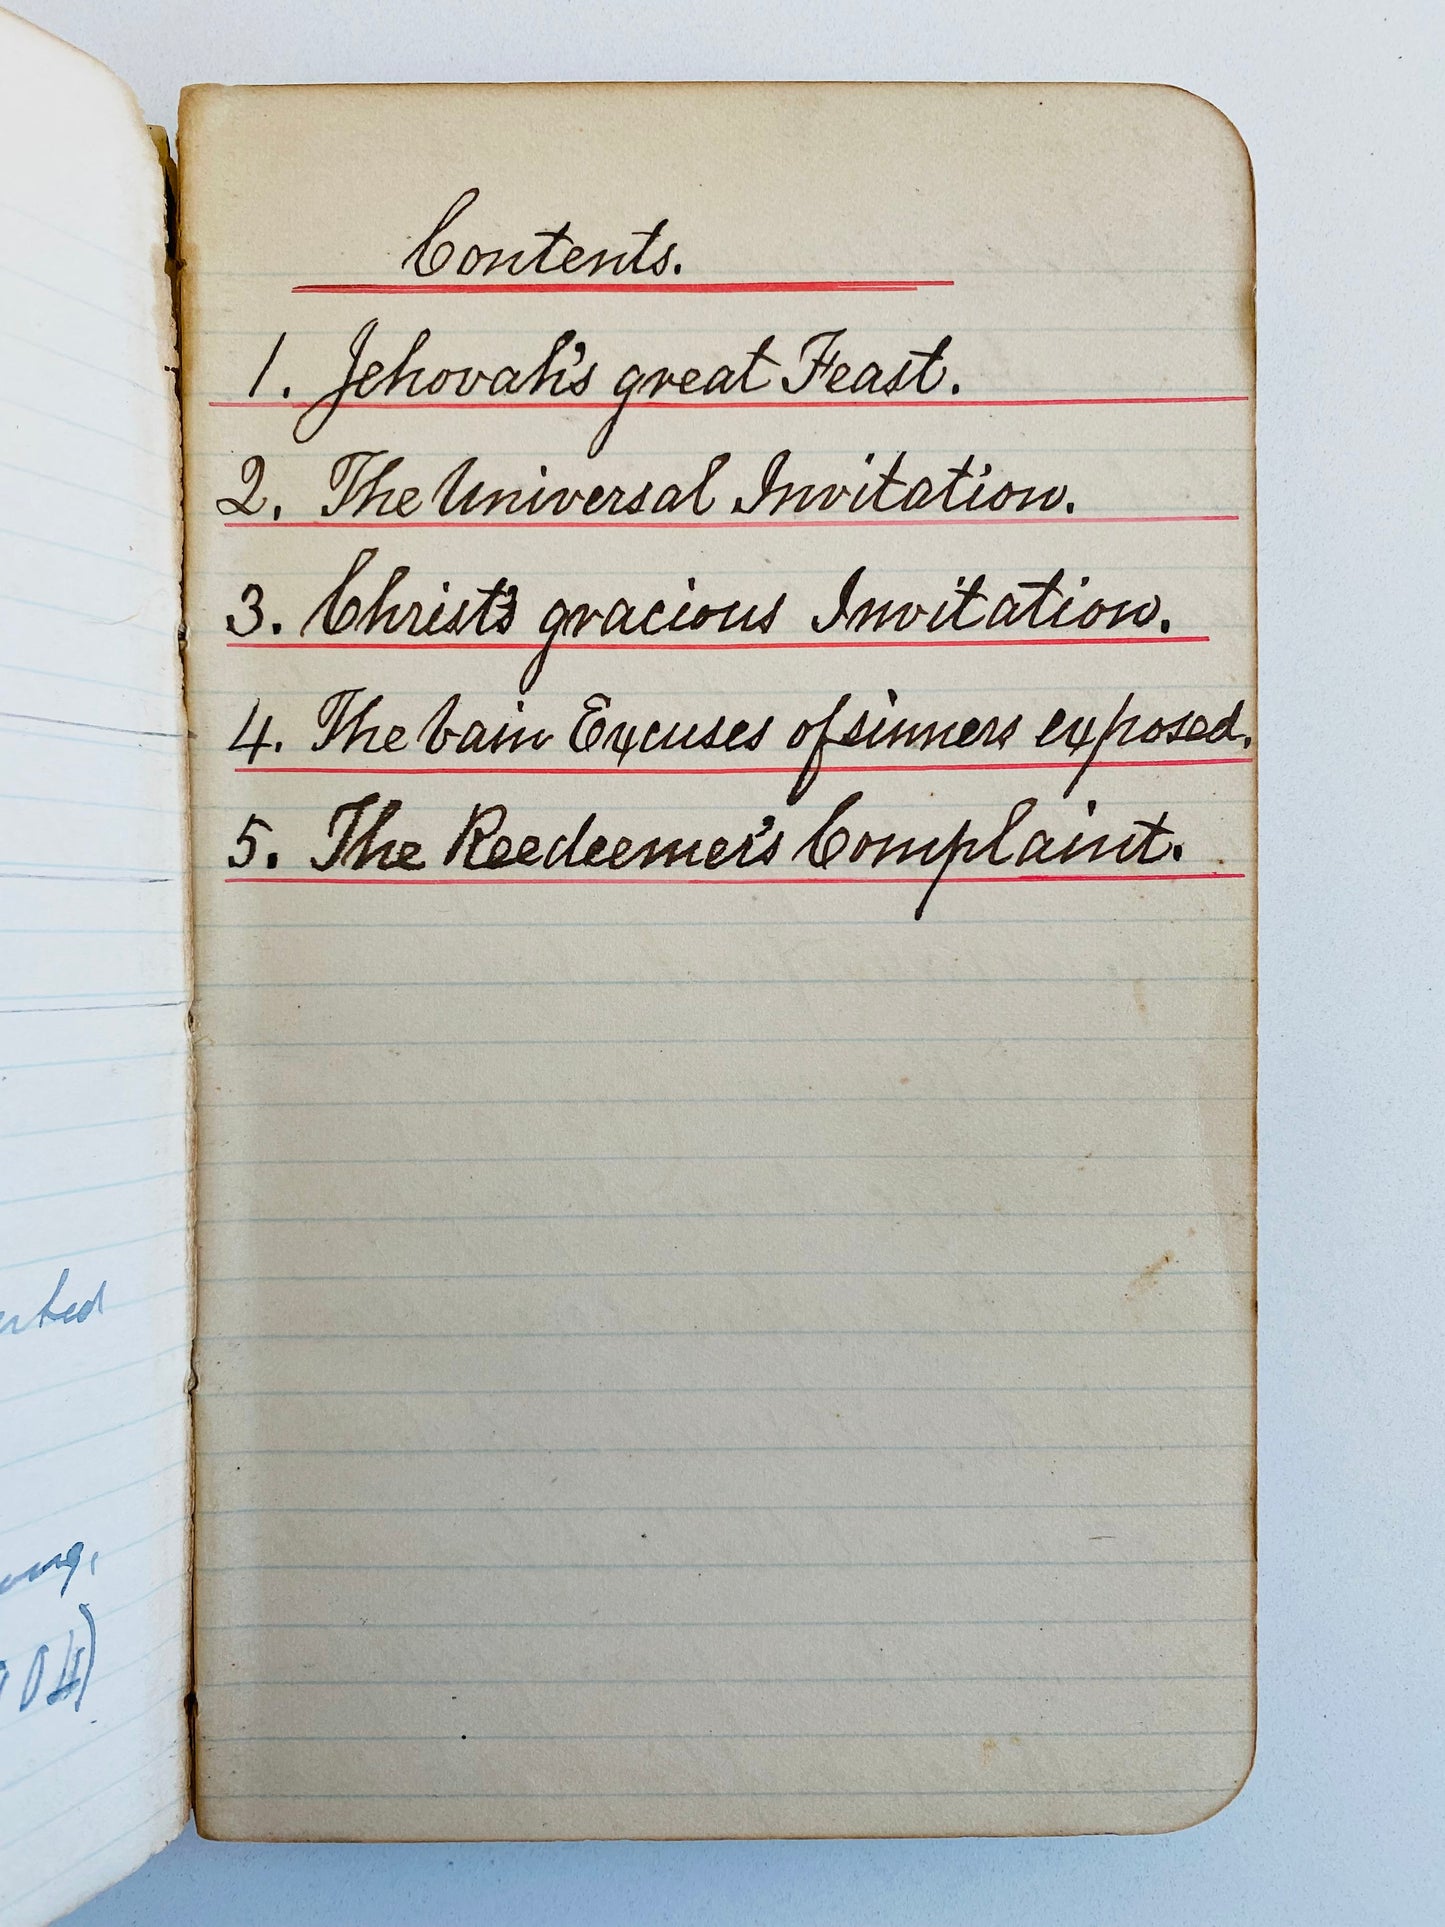 Contents.
1. Jehovah's great Feast.
2. The Universal Invitation.
3. Christ's gracious Invitation.
4. The vain Excuses of sinners exposed.
5. The Reedeemer's Complaint.
04)